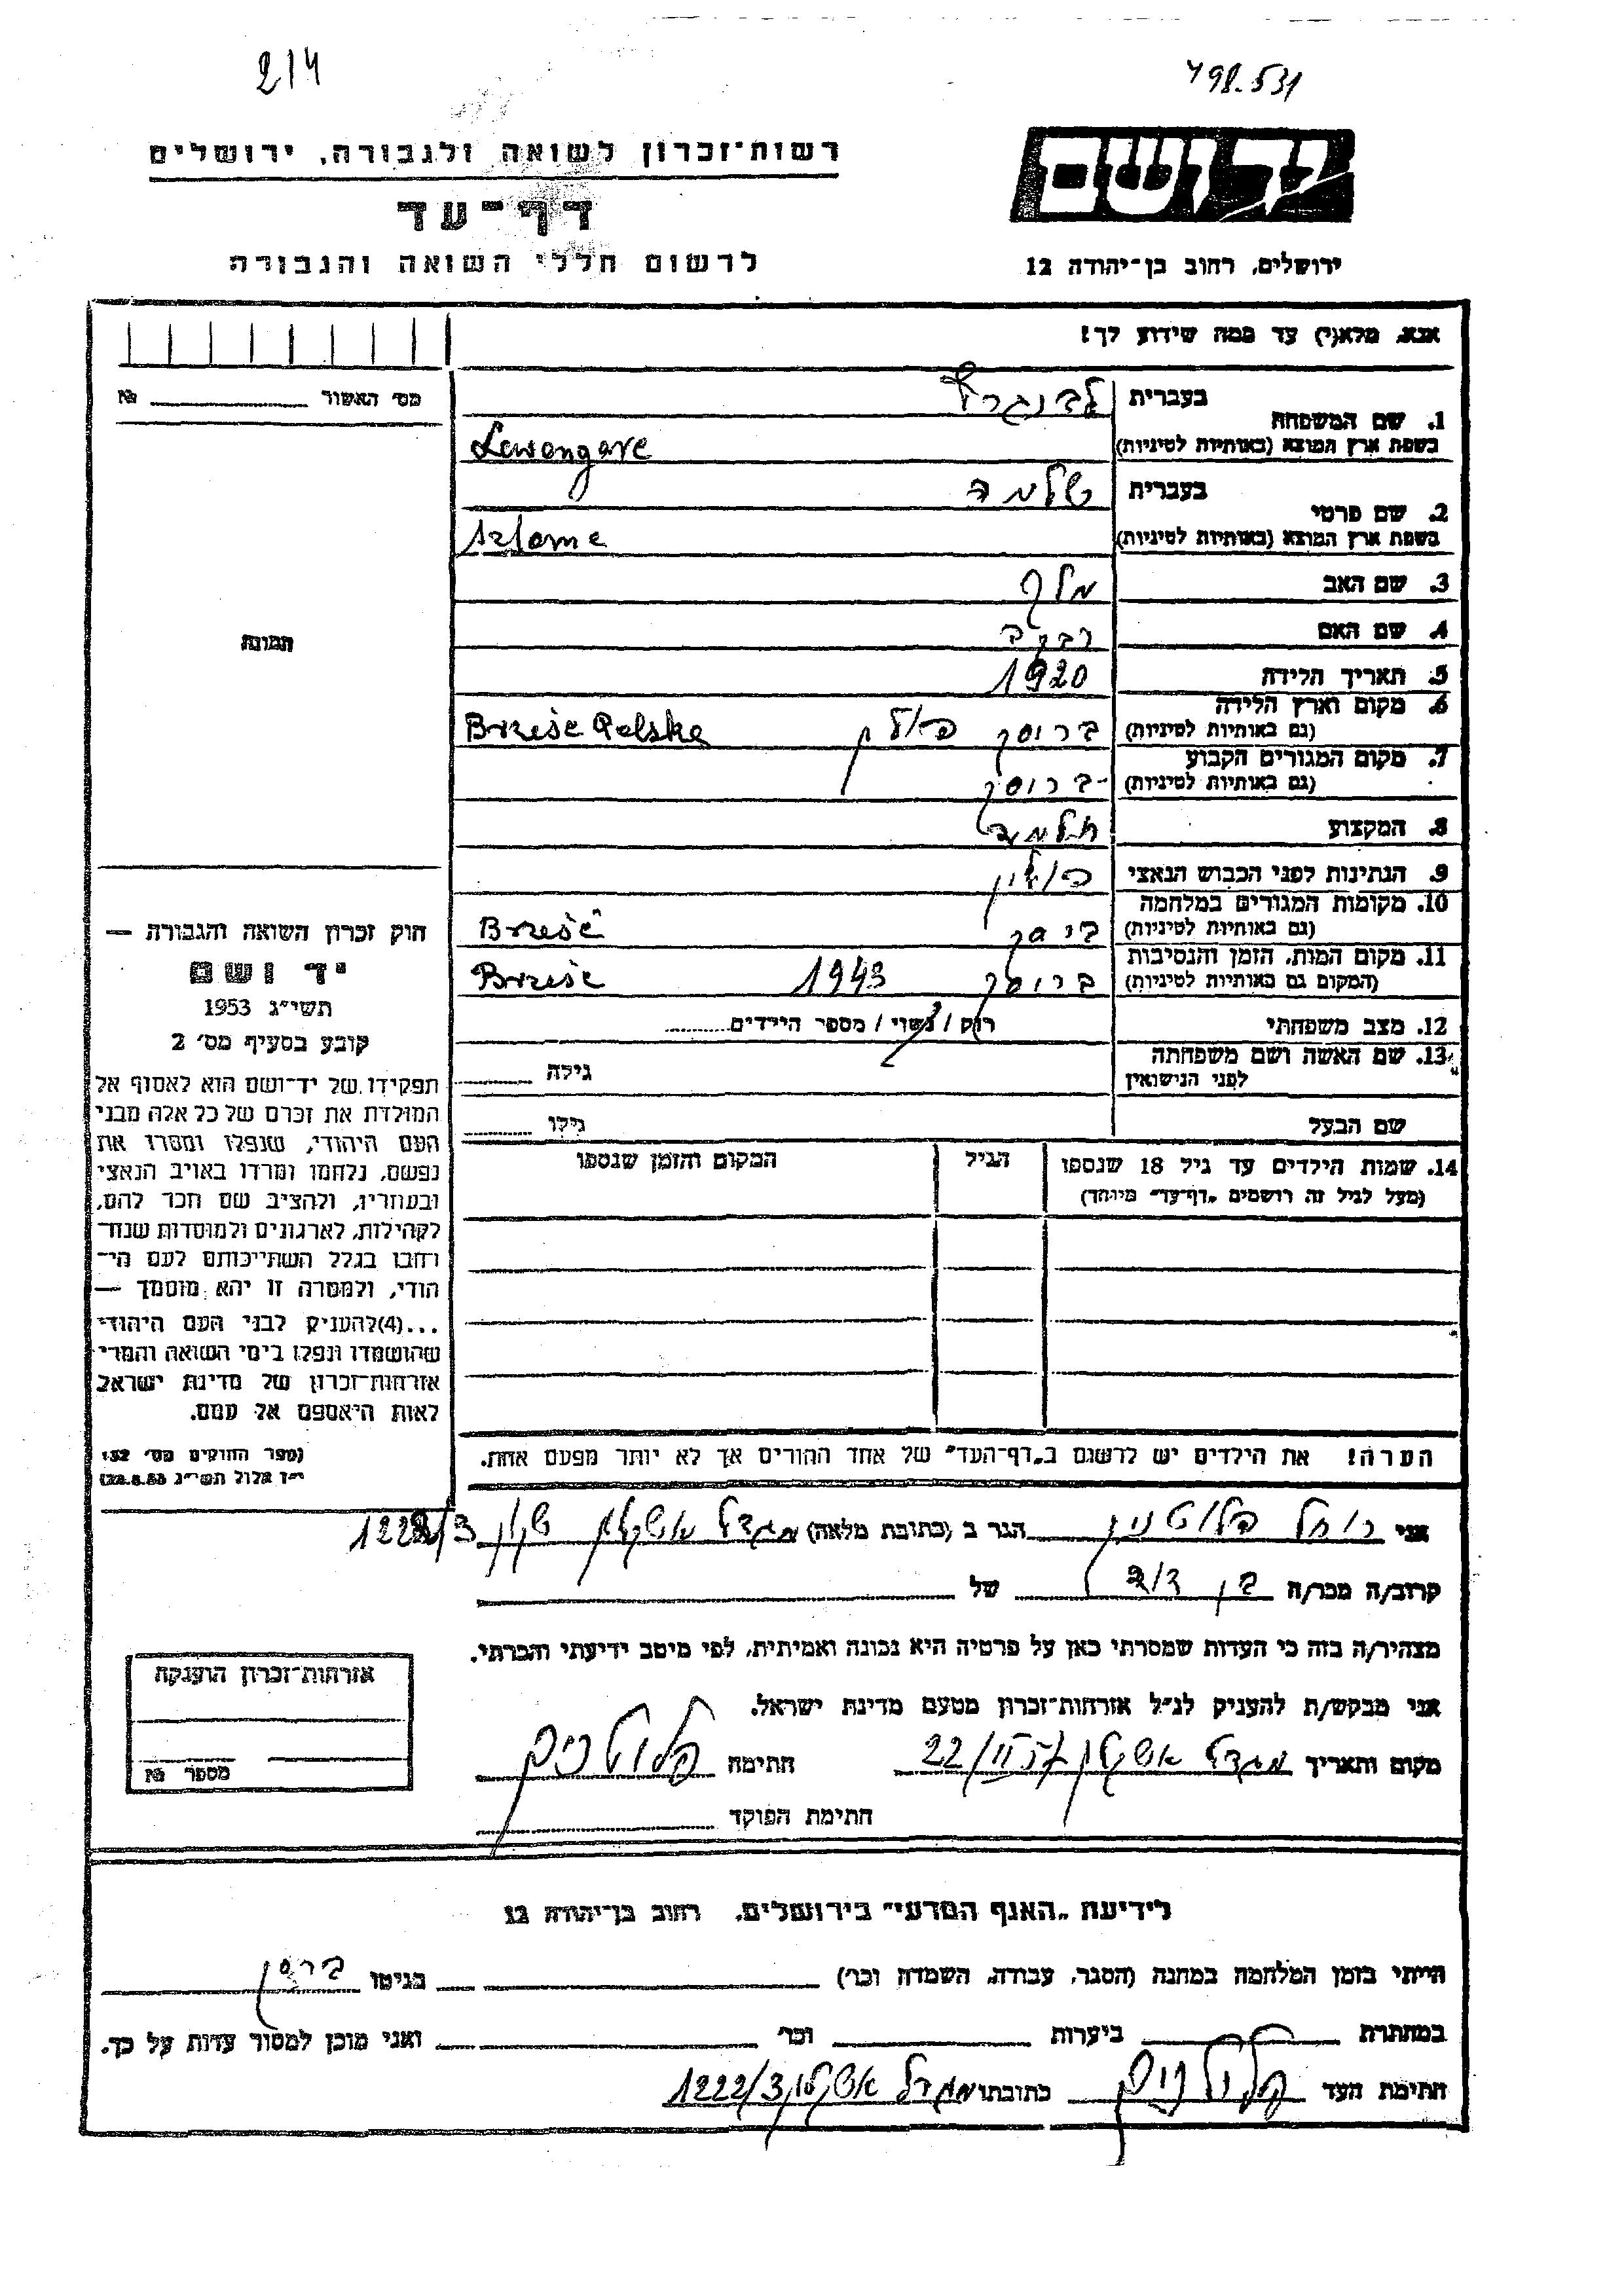 214
498.531
רשות־זכרון לשואה ולגבורה, ירושלים
יד ושם
דף־עד
לרשום חללי השואה והגבורה
ירושלים, רחוב בן־יהודה 12
אנא, מלא(י) עד כמה שידוע לך!
מס׳ האשור № 
1. שם המשפחה
בעברית
בשפת ארץ המוצא (באותיות לטיניות)
2. שם פרטי
בעברית שלמה
בשפת ארץ המוצא (באותיות לטיניות) Szlome
3. שם האב מלך
4. שם האם רבקה
5. תאריך הלידה 1920
6. מקום וארץ הלידה
(גם באותיות לטיניות) Brześć Polska
7. מקום המגורים הקבוע
(גם באותיות לטיניות)
8. המקצוע תלמיד
9. הנתינות לפני הכבוש הנאצי פולין
10. מקומות המגורים במלחמה
(גם באותיות לטיניות) Brześć
11. מקום המות, הזמן והנסיבות
(המקום גם באותיות לטיניות) 1943 Brześć
12. מצב משפחתי רוק / נשוי / מספר הילדים
13. שם האשה ושם משפחתה
לפני הנישואין גילה
שם הבעל גילו
14. שמות הילדים עד גיל 18 שנספו
(מעל לגיל זה רושמים „דף־עד״ מיוחד)
הגיל
המקום והזמן שנספו
הערה! את הילדים יש לרשום ב„דף־העד״ של אחד ההורים אך לא יותר מפעם אחת.
תמונה
חוק זכרון השואה והגבורה —
יד ושם
תשי״ג 1953
קובע בסעיף מס׳ 2
תפקידו של יד־ושם הוא לאסוף אל
המולדת את זכרם של כל אלה מבני
העם היהודי, שנפלו ומסרו את
נפשם, נלחמו ומרדו באויב הנאצי
ובעוזריו, ולהציב שם וזכר להם,
לקהילות, לארגונים ולמוסדות שנח־
רחבו בגלל השתייכותם לעם הי־
הודי, ולמטרה זו יהא מוסמך —
...(4)להעניק לבני העם היהודי
שהושמדו ונפלו בימי השואה והמרי
אזרחות־זכרון של מדינת ישראל
לאות היאספם אל עמם.
(ספר החוקים מס׳ 132
י״ז אלול תשי״ג 28.8.53)
אני רחל הגר ב (כתובת מלאה) מגדל אשקלון שכון 1222/3
קרוב/ה מכר/ה בן דוד של
מצהיר/ה בזה כי העדות שמסרתי כאן על פרטיה היא נכונה ואמיתית, לפי מיטב ידיעתי והכרתי.
אני מבקש/ת להעניק לנ״ל אזרחות־זכרון מטעם מדינת ישראל.
מקום ותאריך מגדל אשקלון 22/ חתימה
חתימת הפוקד
אזרחות־זכרון הוענקה
מספר №
לידיעת „האגף המדעי״ בירושלים, רחוב בן־יהודה 12
הייתי בזמן המלחמה במחנה (הסגר, עבודה, השמדה וכו׳) בגיטו
במחתרת ביערות וכו׳ ואני מוכן למסור עדות על כך.
חתימת העד כתובתו מגדל אשקלון 1222/3